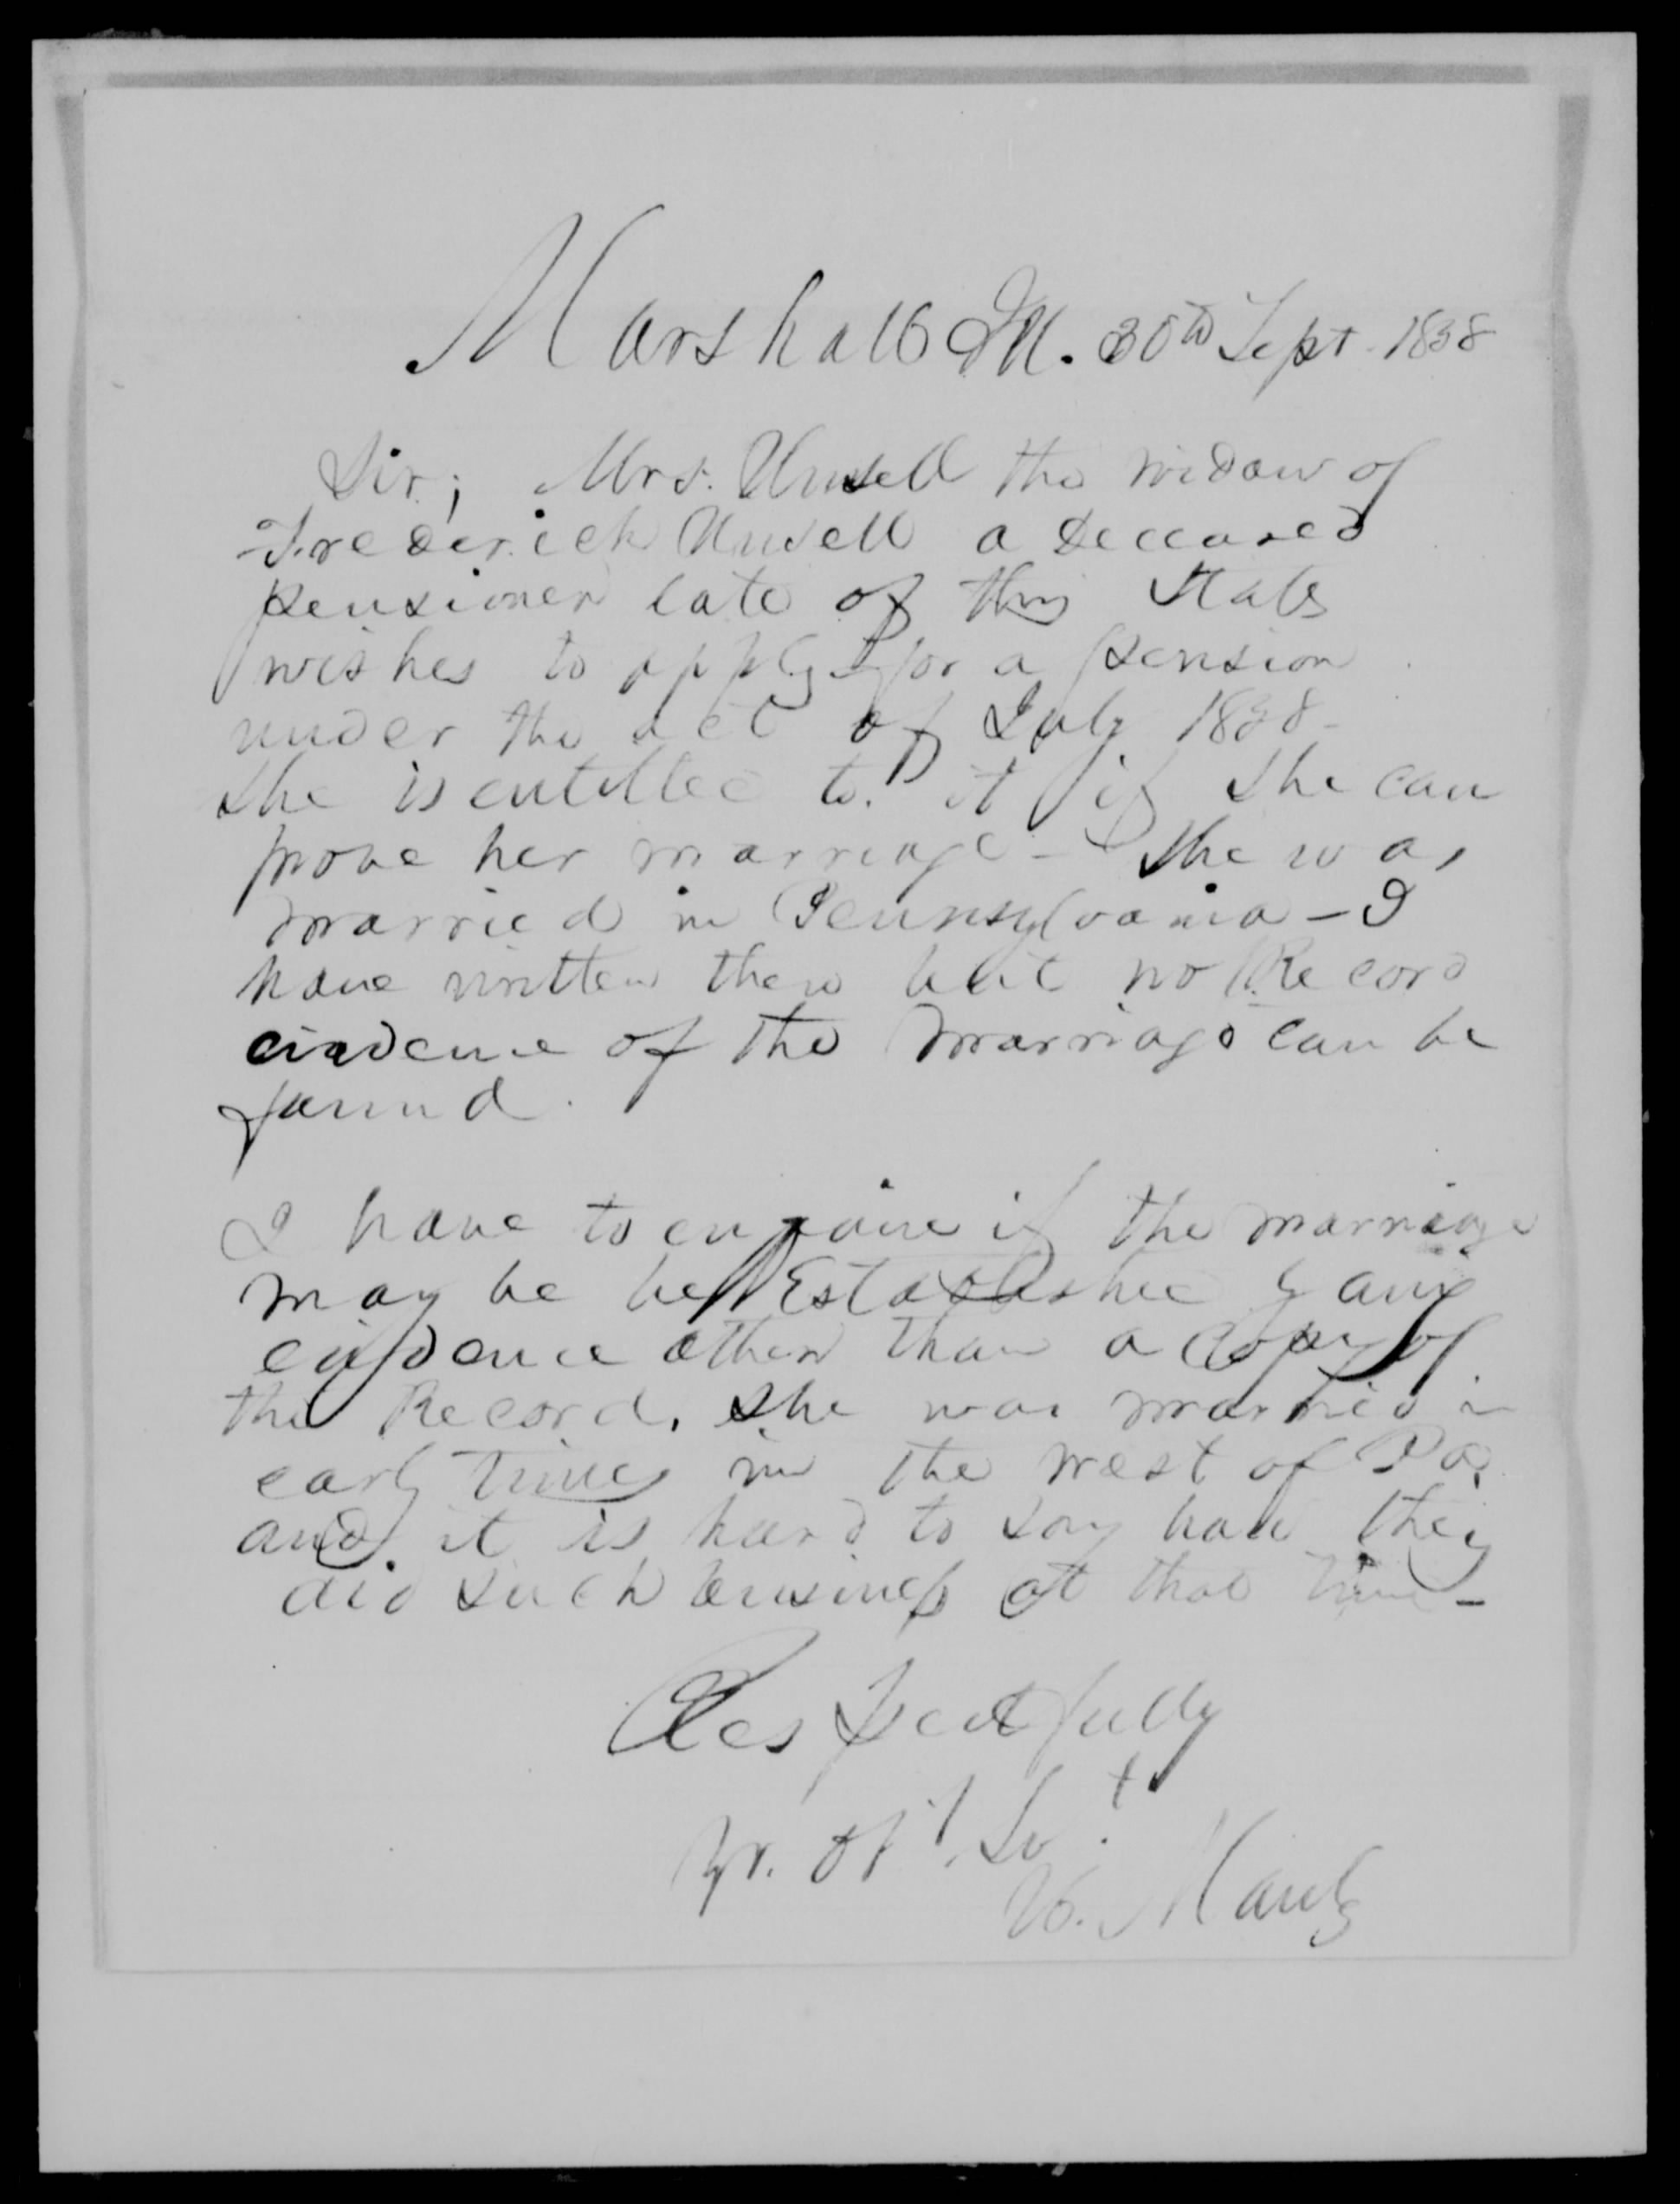 Marshall Ill. 30th Sept. 1838
Sir; Mrs. Unsell the widow of
Frederick Unsell a deceased
pensioner late of this State
wishes to apply for a pension
under the act of July 1838-
she is entitled to it if she can
prove her marriage - She was
married in Pennsylvania - I
have written there but no Record
evidence of the marriage can be
found.
I have to enquire if the marriage
may be be Established by any
evidence other than a copy of
the Record. She was married in
early times in the west of Pa.
and it is hard to say how they
did such business at that time -
Respectfully
Yr. Obt. Svt.